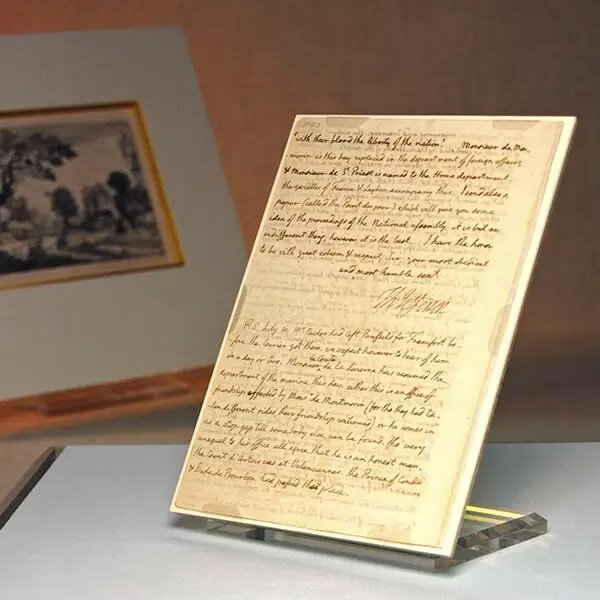 "with their blood the liberty of the nation". Monsieur de Mont-
morin is this day replaced in the department of foreign affairs,
& Monsieur de St. Priest is named to the Home department.
the gazettes of France & Leyden accompany this. I send also a
paper (called the Point du jour) which will give you some
idea of the proceedings of the National assembly. it is but an
indifferent thing; however it is the best. I have the honor
to be with great esteem & respect, Sir, your most obedient
and most humble servt.
Th: Jefferson
P.S. July 21. Mr. Nesbit had left for Transport be-
fore the Courier got there. we expect however to hear of him
in a day or two. Monsieur le Comte de la Luzerne has resumed the
department of the marine this day. either this is an office of
friendship effected by Monsr. de Montmorin (for tho they had ta-
ken different sides, their friendship continued) or he comes in
as a stop gap till somebody else can be found. tho' very
unequal to his office, all agree that he is an honest man.
the Count d'Artois was at Valenciennes. the Prince of Condé
& Duke de Bourbon had passed that place.